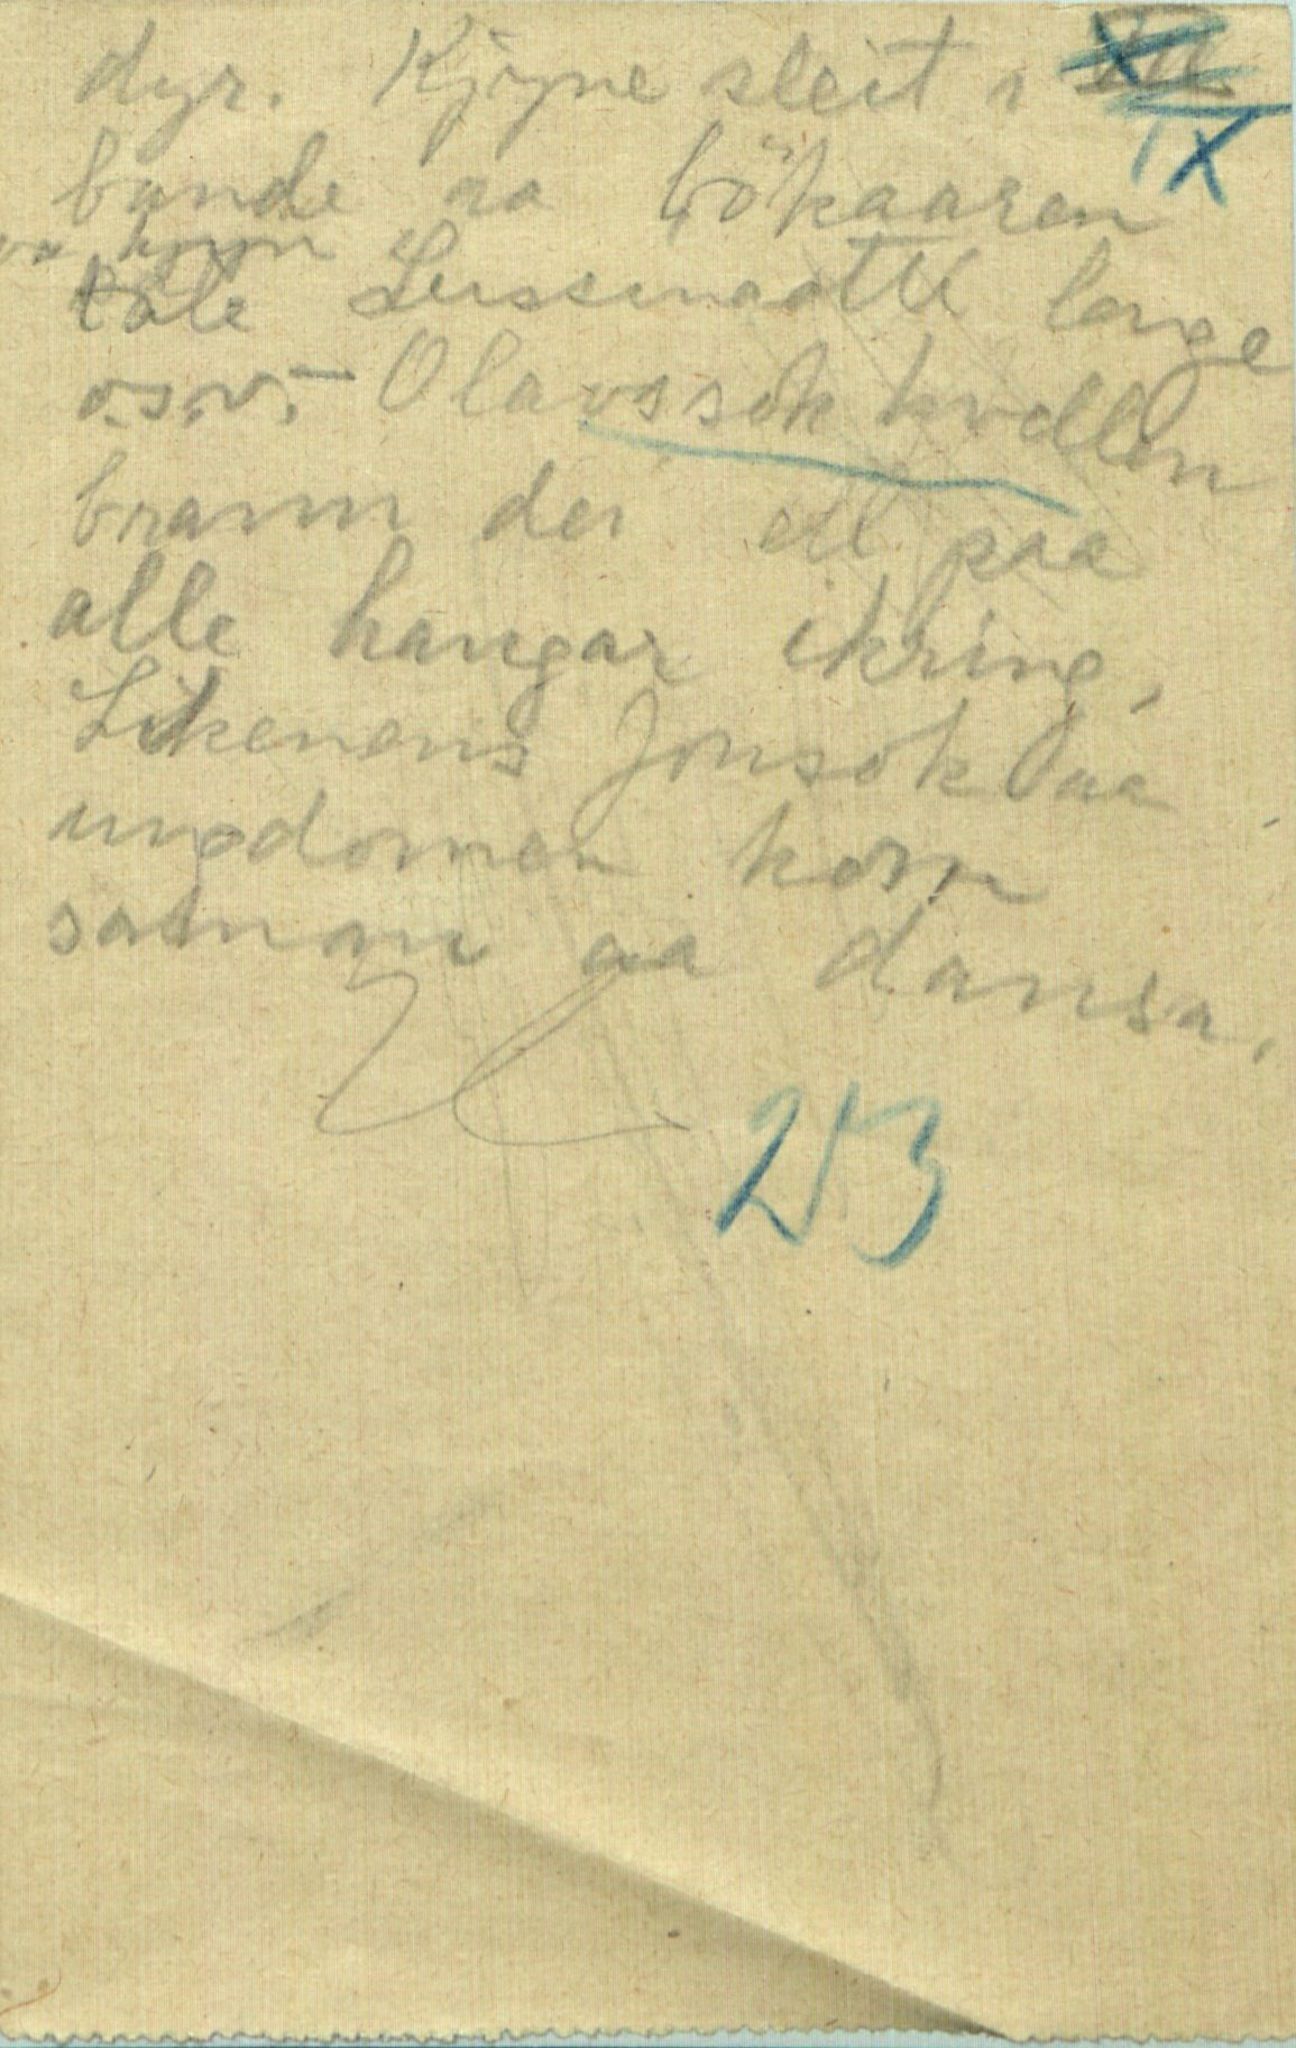 dyr. Kjyne sleit i
IX
bande aa bökaaren
aa kyyn
tole Lussinaatti lange
o.s.v.- Olavssok kvellen
brann dei ell paa
alle haugar ikring,
Likeneins Jonsok aa
ungdomen kom
saman aa dansa.
253